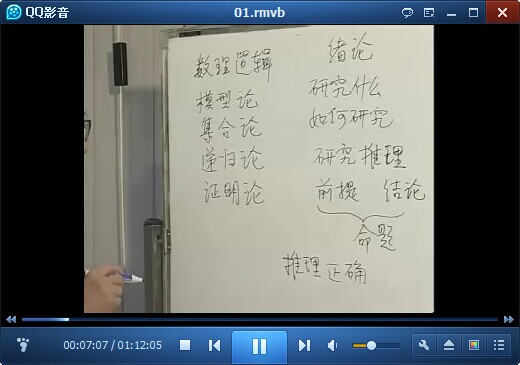 QQ影音
01.rmvb
数理逻辑
模型论
集合论
递归论
证明论
绪论
研究什么
如何研究
研究推理
前提 结论
命题
推理正确
00:07:07 / 01:12:05